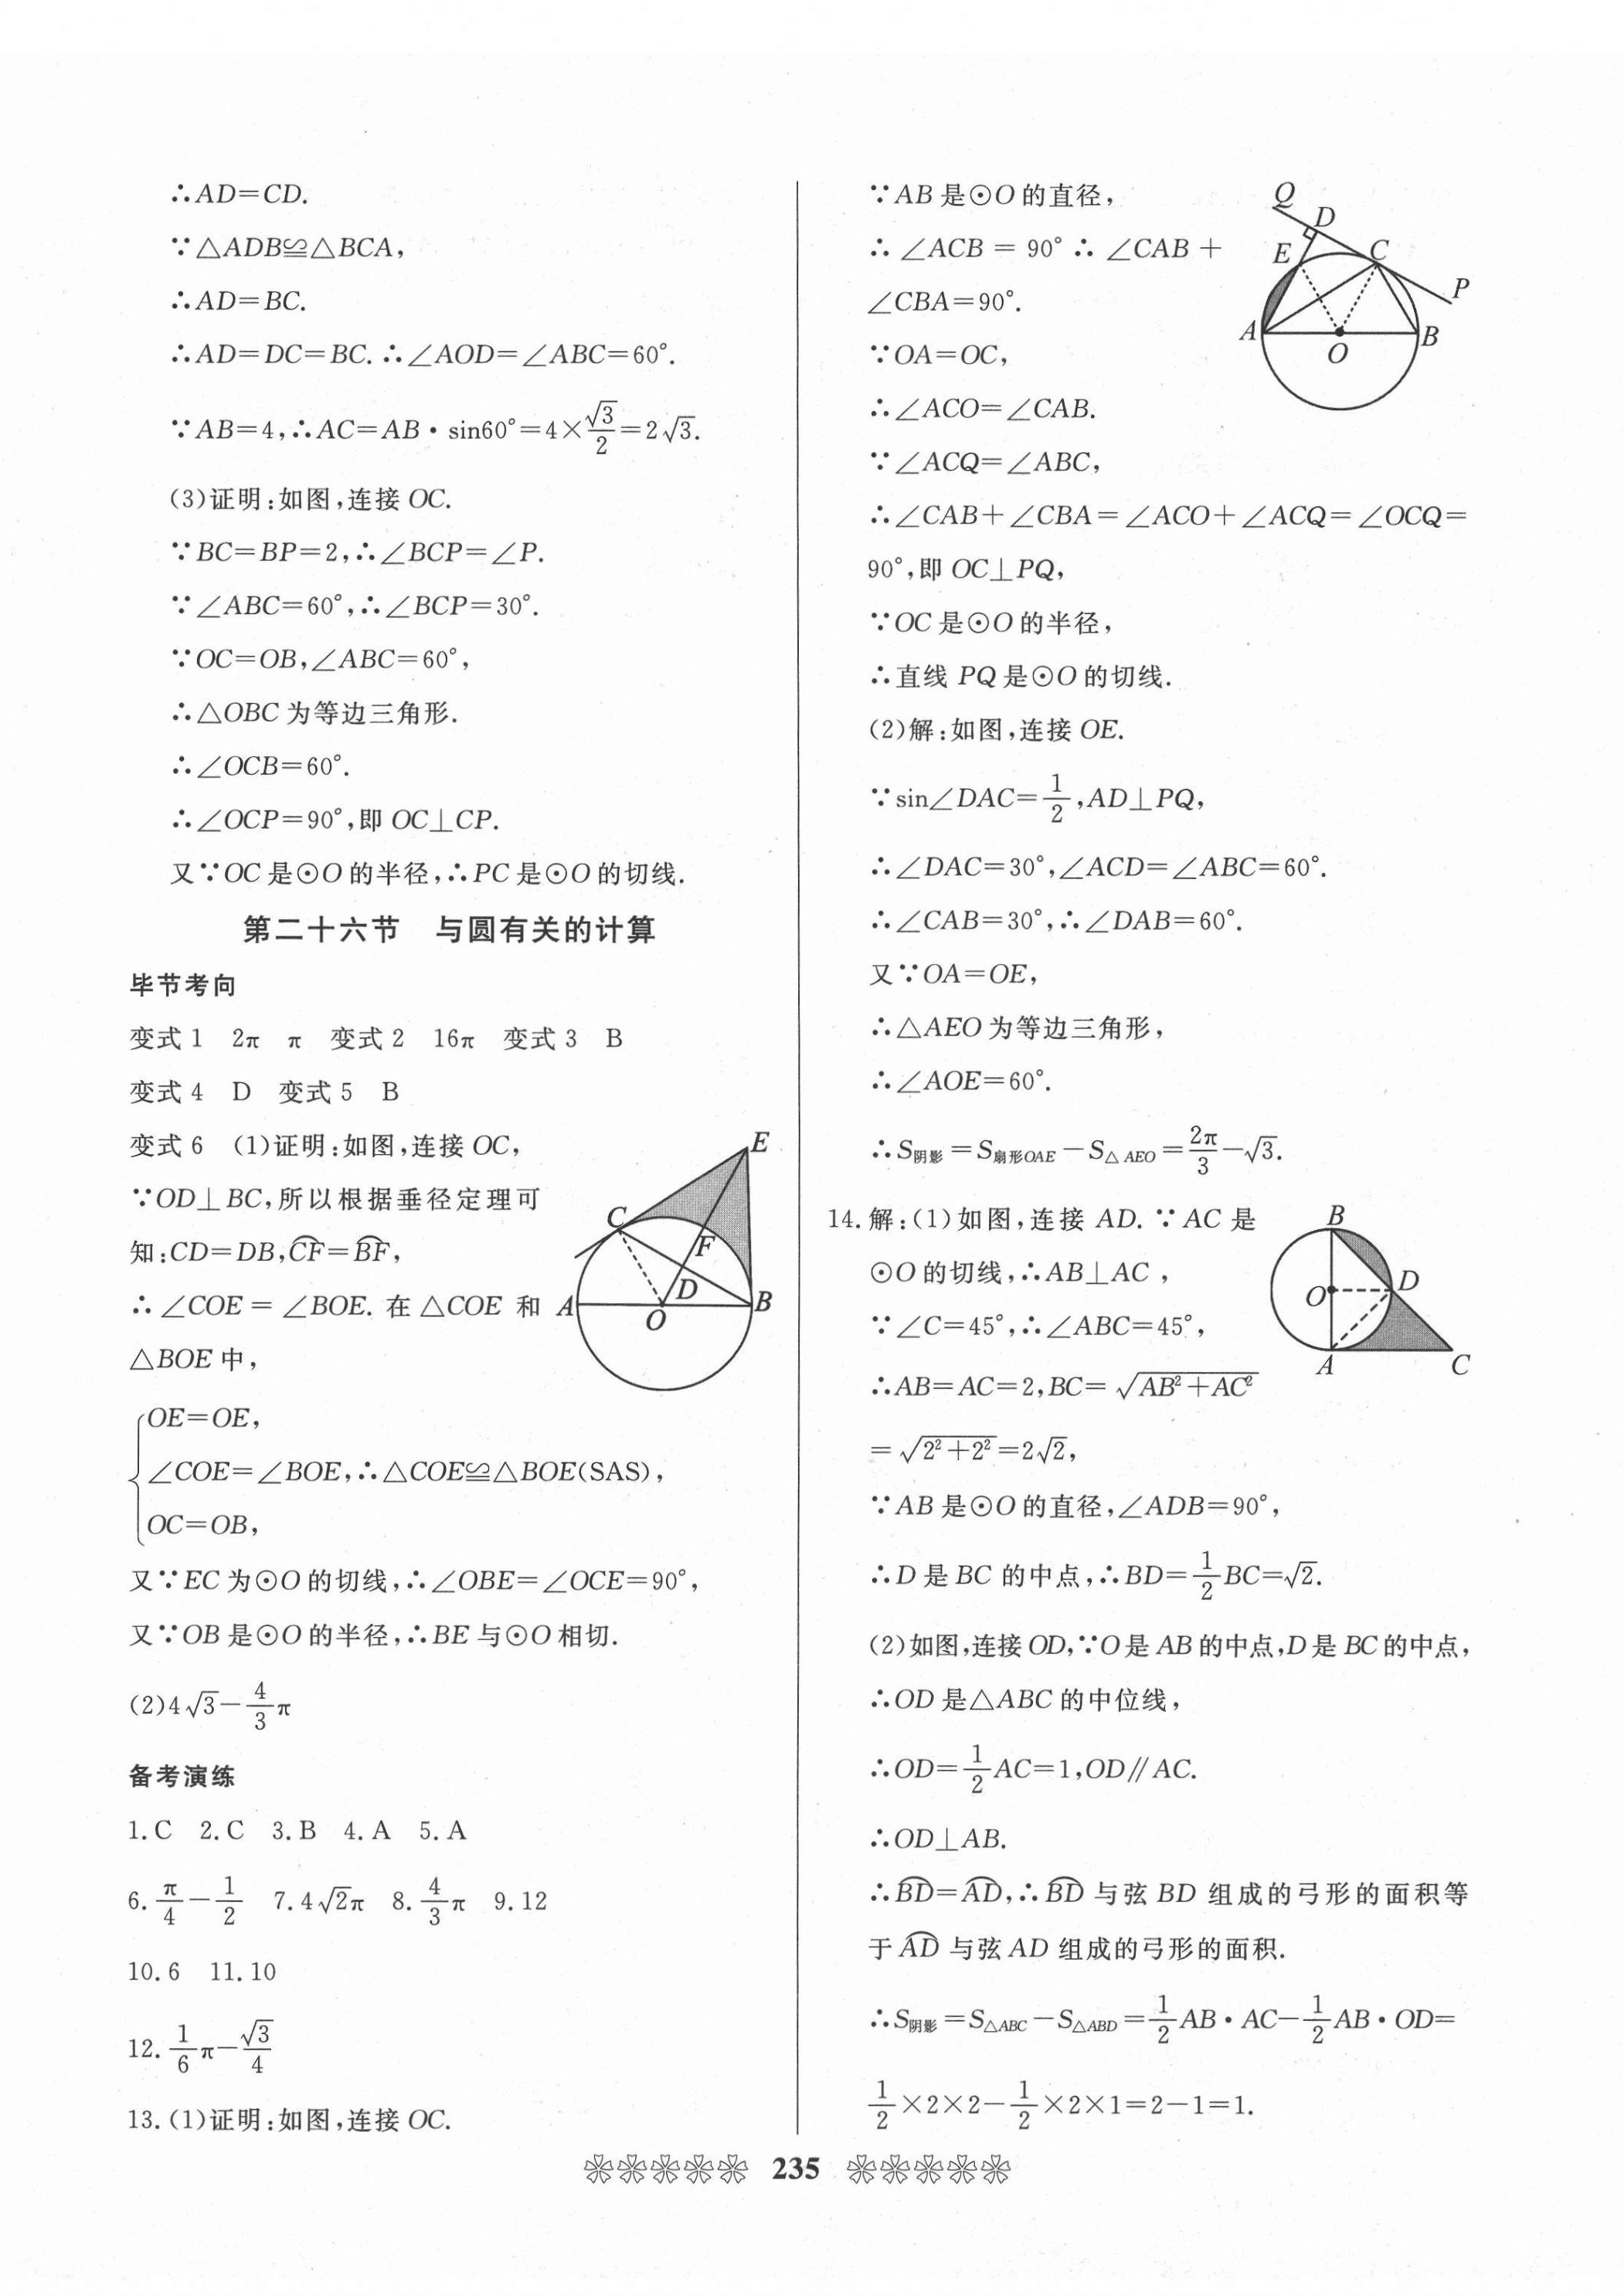 ∴AD=CD.
∵△ADB≌△BCA,
∴AD=BC.
∴AD=DC=BC.∴∠AOD=∠ABC=60°.
∵AB=4,∴AC=AB·sin60°=4×√3/2=2√3.
(3)证明:如图,连接 OC.
∵BC=BP=2,∴∠BCP=∠P.
∵∠ABC=60°,∴∠BCP=30°.
∵OC=OB,∠ABC=60°,
∴△OBC 为等边三角形.
∴∠OCB=60°.
∴∠OCP=90°,即 OC⊥CP.
又∵OC 是⊙O 的半径,∴PC 是⊙O 的切线.
第二十六节 与圆有关的计算
毕节考向
变式 1 2π π 变式 2 16π 变式 3 B
变式 4 D 变式 5 B
变式 6 (1)证明:如图,连接 OC,
∵OD⊥BC,所以根据垂径定理可
知:CD=DB,C͡F=B͡F,
∴∠COE=∠BOE. 在△COE 和
△BOE 中,
E
C
F
D
A
O
B
OE=OE,
∠COE=∠BOE,∴△COE≌△BOE(SAS),
OC=OB,
又∵EC 为⊙O 的切线,∴∠OBE=∠OCE=90°,
又∵OB 是⊙O 的半径,∴BE 与⊙O 相切.
(2)4√3-4/3π
备考演练
1.C 2.C 3.B 4.A 5.A
6.π/4-1/2 7.4√2π 8.4/3π 9.12
10.6 11.10
12.1/6π-√3/4
13.(1)证明:如图,连接 OC.
∵AB 是⊙O 的直径,
∴∠ACB=90°∴∠CAB+
∠CBA=90°.
∵OA=OC,
∴∠ACO=∠CAB.
Q
D
E
C
P
A
B
O
∵∠ACQ=∠ABC,
∴∠CAB+∠CBA=∠ACO+∠ACQ=∠OCQ=
90°,即 OC⊥PQ,
∵OC 是⊙O 的半径,
∴直线 PQ 是⊙O 的切线.
(2)解:如图,连接 OE.
∵sin∠DAC=1/2,AD⊥PQ,
∴∠DAC=30°,∠ACD=∠ABC=60°.
∴∠CAB=30°,∴∠DAB=60°.
又∵OA=OE,
∴△AEO 为等边三角形,
∴∠AOE=60°.
∴S阴影=S扇形OAE-S△AEO=2π/3-√3.
14.解:(1)如图,连接 AD.∵AC 是
⊙O 的切线,∴AB⊥AC,
∵∠C=45°,∴∠ABC=45°,
∴AB=AC=2,BC=√(AB²+AC²)
=√(2²+2²)=2√2,
B
O
D
A
C
∵AB 是⊙O 的直径,∠ADB=90°,
∴D 是 BC 的中点,∴BD=1/2BC=√2.
(2)如图,连接 OD,∵O 是 AB 的中点,D 是 BC 的中点,
∴OD 是△ABC 的中位线,
∴OD=1/2AC=1,OD∥AC.
∴OD⊥AB.
∴B͡D=A͡D,∴B͡D 与弦 BD 组成的弓形的面积等
于 A͡D 与弦 AD 组成的弓形的面积.
∴S阴影=S△ABC-S△ABD=1/2AB·AC-1/2AB·OD=
1/2×2×2-1/2×2×1=2-1=1.
235